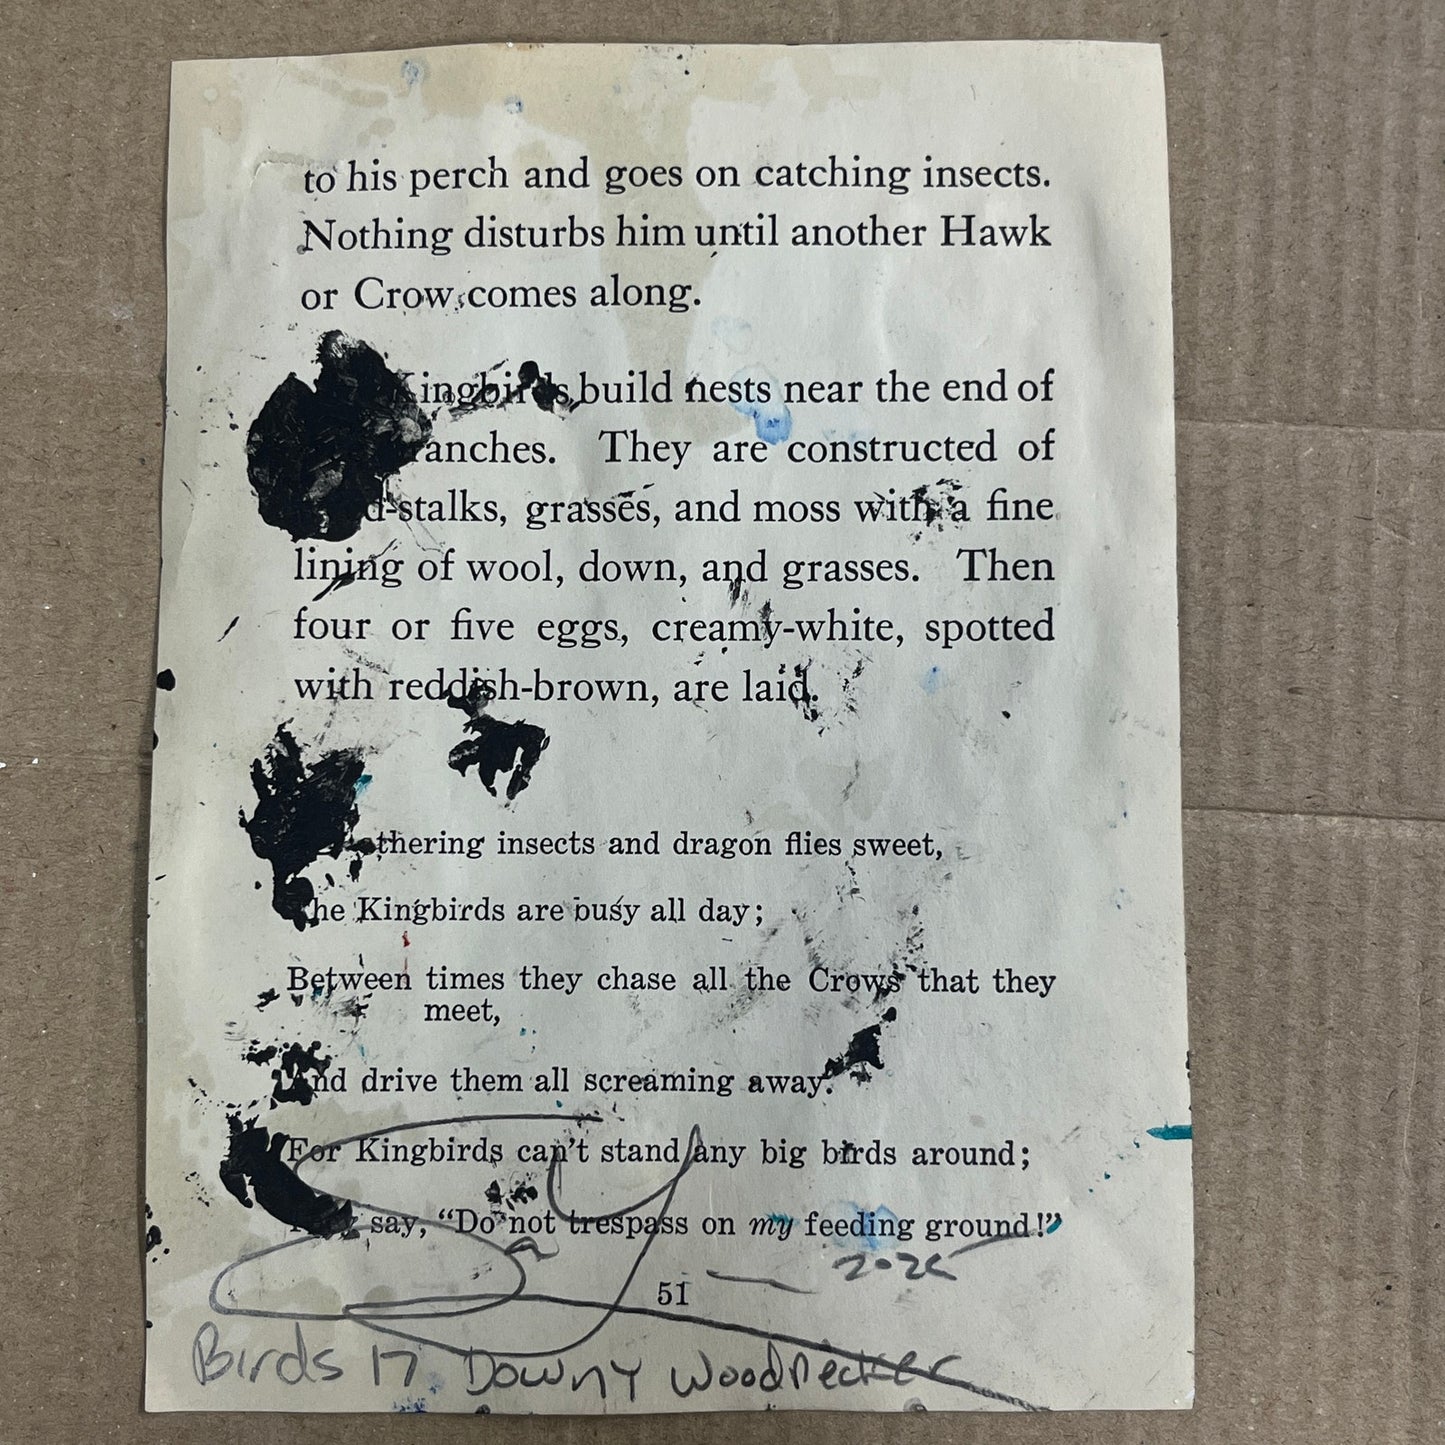 to his perch and goes on catching insects.
Nothing disturbs him until another Hawk
or Crow comes along.
Kingbirds build nests near the end of
ranches. They are constructed of
d-stalks, grasses, and moss with a fine
lining of wool, down, and grasses. Then
four or five eggs, creamy-white, spotted
with reddish-brown, are laid.
thering insects and dragon flies sweet,
he Kingbirds are busy all day;
Between times they chase all the Crows that they
meet,
And drive them all screaming away.
For Kingbirds can't stand any big birds around;
say, “Do not trespass on my feeding ground!”
51
Birds 17 Downy Woodpecker